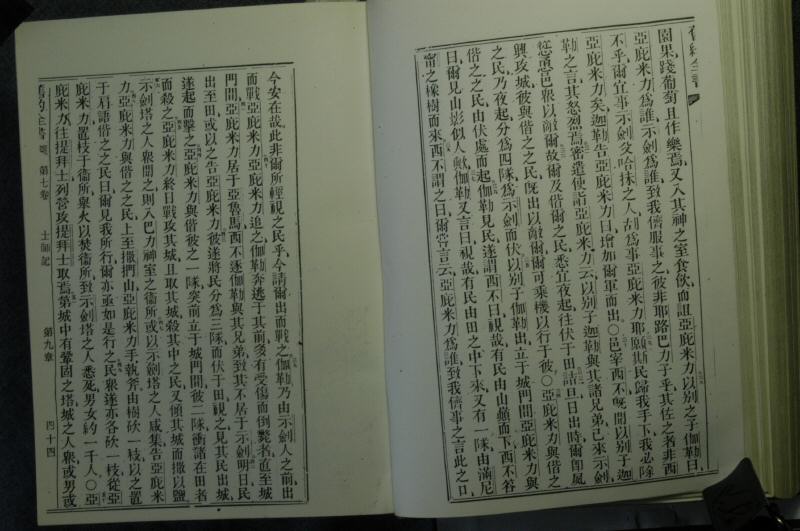 舊約全書
園果踐葡萄且作樂焉又入其神之室食飲而詛亞庇米力以別之子伽勒曰
亞庇米力爲誰示劍爲誰致我儕服事之彼非耶路巴力子乎其佐之者非西
不乎爾宜事示劍父哈抹之人胡爲事亞庇米力耶願斯民歸我手下我必除
亞庇米力矣迦勒告亞庇米力曰增加爾軍而出〇邑宰西不旣聞以別子迦
勒之言其怒烈焉密遣使詣亞庇米力云以別子迦勒與其諸兄弟已來示劍
慫邑衆以敵爾故爾及偕爾之民悉宜夜起往伏于田詰旦日出時爾卽夙
興攻城彼與偕之之民旣出以敵爾爾可乘機以行于彼〇亞庇米力與偕之
之民乃夜起分爲四隊爲示劍而伏以別子伽勒出立于城門閒亞庇米力與
偕之之民由伏處而起伽勒見民遂謂西不曰視哉有民由山巓而下西不答
曰爾見山影似人歟伽勒又言曰視哉有民由田之中下來又有一隊由滿尼
甯之橡樹而來西不謂之曰爾嘗言云亞庇米力爲誰致我儕事之言此之口
今安在哉此非爾所輕視之民乎今請爾出而戰之伽勒乃由示劍人之前出
而戰亞庇米力亞庇米力追之伽勒奔逃于其前多有受傷而倒斃者直至城
門閒亞庇米力居于亞魯馬西不逐伽勒與其兄弟致其不居于示劍明日民
出至田或以之告亞庇米力彼遂將民分爲三隊而伏于田視之見其民出城
遂起而擊之亞庇米力與偕彼之一隊突前立于城門閒彼二隊衝諸在田者
而殺之亞庇米力終日戰攻其城且取其城殺其中之民又傾其城而撒以鹽
示劍塔之人衆聞之則入巴力神室之衞所或以示劍塔之人咸集告亞庇米
力亞庇米力與偕之之民上至撒們山亞庇米力手執斧由樹砍一枝以之置
于肩語偕之之民曰爾見我所行爾亦亟如是行之民衆遂亦各砍一枝從亞
庇米力置枝于衞所舉火以焚衞所致示劍塔之人悉死男女約一千人〇亞
庇米力往提拜士列營攻提拜士取焉第城中有鞏固之塔城之人衆或男或
舊約全書 第七卷 士師記 第九章 四十四